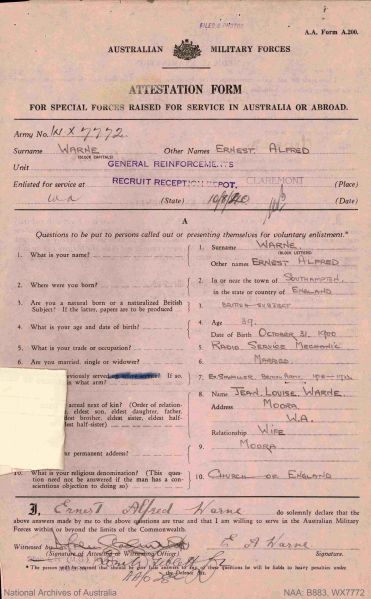 FILED & PHOTOS
A.A. Form A.200.
AUSTRALIAN MILITARY FORCES
ATTESTATION FORM
FOR SPECIAL FORCES RAISED FOR SERVICE IN AUSTRALIA OR ABROAD.
Army No. WX7772
Surname WARNE Other Names ERNEST ALFRED
(BLOCK CAPITALS)
Unit GENERAL REINFORCEMENTS
Enlisted for service at RECRUIT RECEPTION DEPOT, CLAREMONT (Place)
W.A. (State) 10/8/40 (Date)
A
Questions to be put to persons called out or presenting themselves for voluntary enlistment.*
1. What is your name? 1. Surname WARNE
(BLOCK LETTERS)
Other names ERNEST ALFRED
2. Where were you born? 2. In or near the town of SOUTHAMPTON
in the state or country of ENGLAND
3. Are you a natural born or a naturalized British Subject? If the latter, papers are to be produced 3. BRITISH SUBJECT
4. What is your age and date of birth? 4. Age 39
Date of Birth OCTOBER 31, 1900
5. What is your trade or occupation? 5. RADIO SERVICE MECHANIC
6. Are you married, single or widower? 6. MARRIED
previously served If so, in what arm? 7.
actual next of kin? (Order of relation-
eldest son, eldest daughter, father,
brother, eldest sister, eldest half-
eldest half-sister) 8. Name JEAN LOUISE WARNE
Address MOORA
W.A.
Relationship WIFE
permanent address? 9. MOORA
10. What is your religious denomination? (This question need not be answered if the man has a conscientious objection to doing so) 10. CHURCH OF ENGLAND
I, Ernest Alfred Warne do solemnly declare that the
above answers made by me to the above questions are true and that I am willing to serve in the Australian Military
Forces within or beyond the limits of the Commonwealth.
Witnessed by E A Warne
Signature of Attesting or Witnessing Officer) Signature.
* The person will be warned that should he give false answers to any of these questions he will be liable to heavy penalties under
the Defence Act.
National Archives of Australia NAA: B883, WX7772